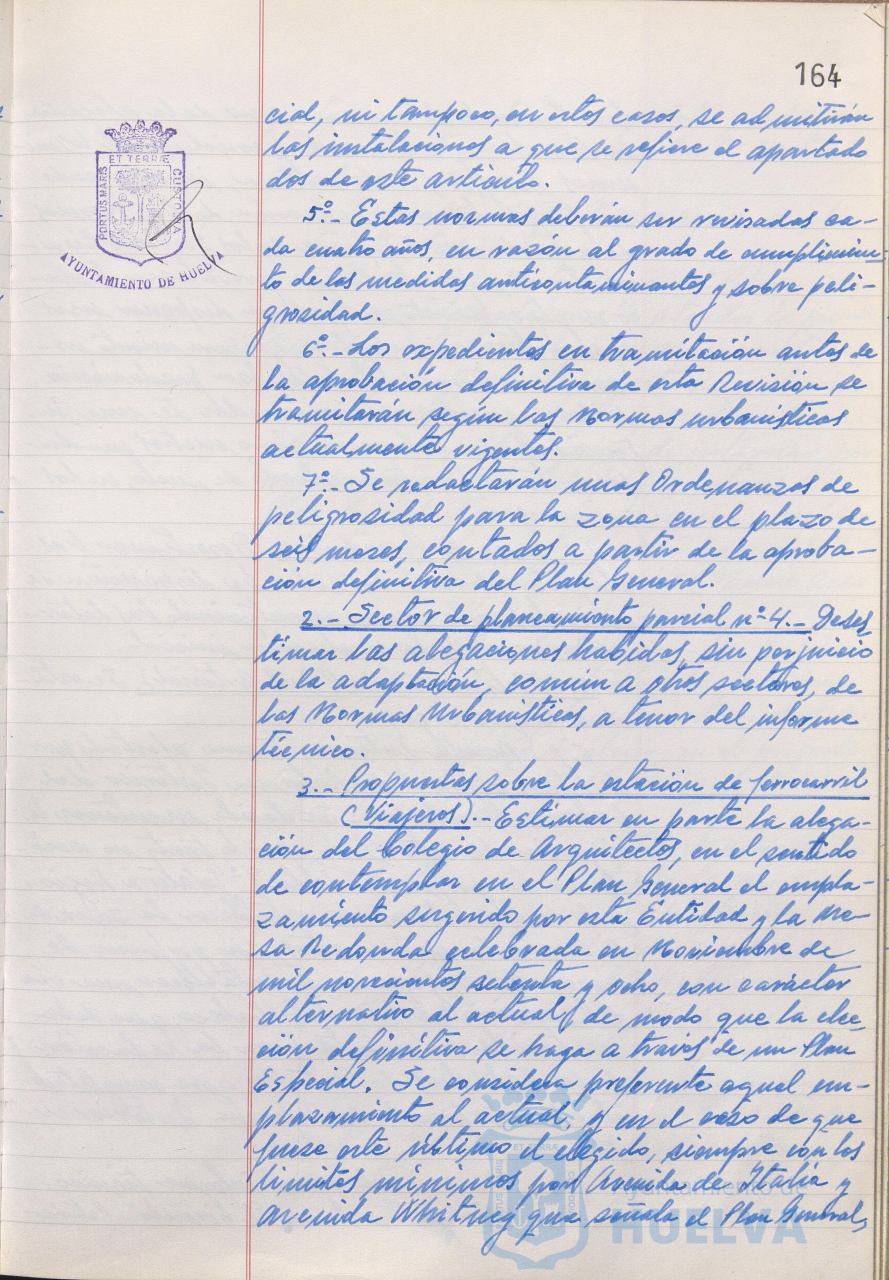 164
cial, ni tampoco, en estos casos, se admitirán
las instalaciones a que se refiere el apartado
dos de este artículo.
5º.- Estas normas deberán ser revisadas ca-
da cuatro años, en razón al grado de cumplimien-
to de las medidas anticontaminantes y sobre peli-
grosidad.
6º.- Los expedientes en tramitación antes de
la aprobación definitiva de esta Revisión se
tramitarán según las Normas urbanísticas
actualmente vigentes.
7º.- Se redactarán unas Ordenanzas de
peligrosidad para la zona en el plazo de
seis meses, contados a partir de la aproba-
ción definitiva del Plan General.
2.- Sector de planeamiento parcial nº 4.- Deses
timar las alegaciones habidas, sin perjuicio
de la adaptación, común a otros sectores, de
las Normas Urbanísticas, a tenor del informe
técnico.
3.- Propuestas sobre la estación de ferrocarril
(Viajeros).- Estimar en parte la alega-
ción del Colegio de Arquitectos, en el sentido
de contemplar en el Plan General el empla-
zamiento sugerido por esta Entidad y la Me-
sa Redonda celebrada en Noviembre de
mil novecientos setenta y ocho, con carácter
alternativo al actual, de modo que la elec-
ción definitiva se haga a través de un Plan
Especial. Se considera preferente aquel em-
plazamiento al actual, y en el caso de que
fuese este último el elegido, siempre con los
límites mínimos por Avenida de Italia y
Avenida Whitney que señala el Plan General,
PORTUS MARIS
ET TERRÆ
CUSTODIA
AYUNTAMIENTO DE HUELVA
Ayuntamiento de
HUELVA